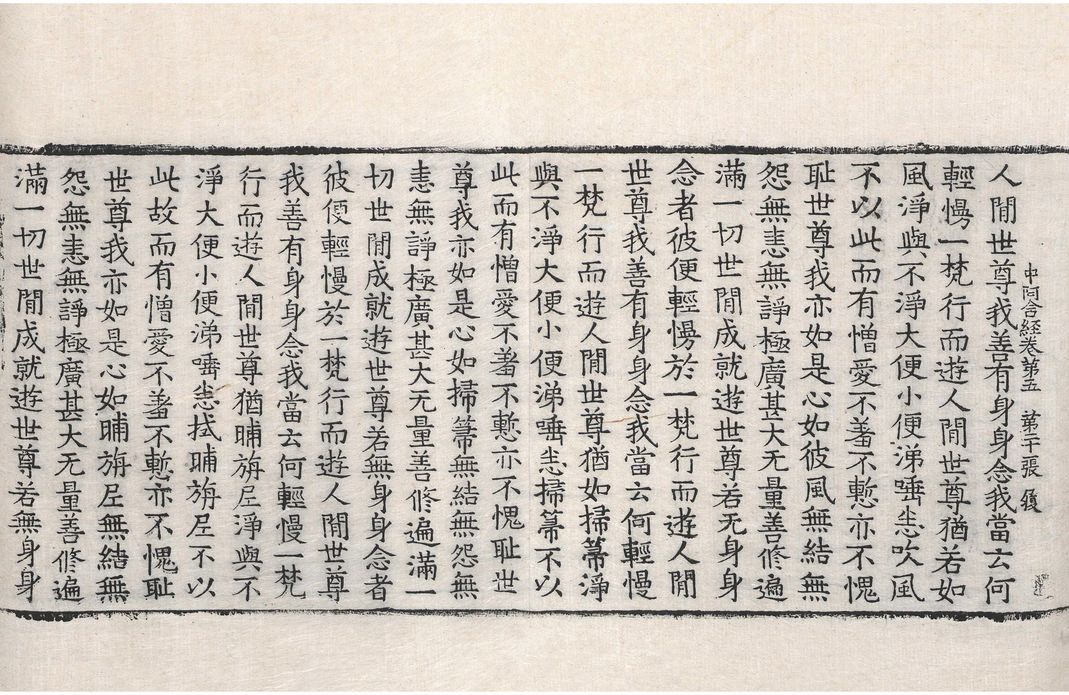 中阿含経卷第五 第二十張 履
人閒世尊我善有身身念我當云何
輕慢一梵行而遊人閒世尊猶若如
風淨與不淨大便小便涕唾悉吹風
不以此而有憎愛不羞不慙亦不愧
耻世尊我亦如是心如彼風無結無
怨無恚無諍極廣甚大无量善修遍
滿一切世閒成就遊世尊若无身身
念者彼便輕慢於一梵行而遊人閒
世尊我善有身身念我當云何輕慢
一梵行而遊人閒世尊猶如掃箒淨
與不淨大便小便涕唾悉掃箒不以
此而有憎愛不羞不慙亦不愧耻世
尊我亦如是心如掃箒無結無怨無
恚無諍極廣甚大无量善修遍滿一
切世閒成就遊世尊若無身身念者
彼便輕慢於一梵行而遊人閒世尊
我善有身身念我當云何輕慢一梵
行而遊人閒世尊猶晡旃尼淨與不
淨大便小便涕唾悉拭晡旃尼不以
此故而有憎愛不羞不慙亦不愧耻
世尊我亦如是心如晡旃尼無結無
怨無恚無諍極廣甚大无量善修遍
滿一切世閒成就遊世尊若無身身